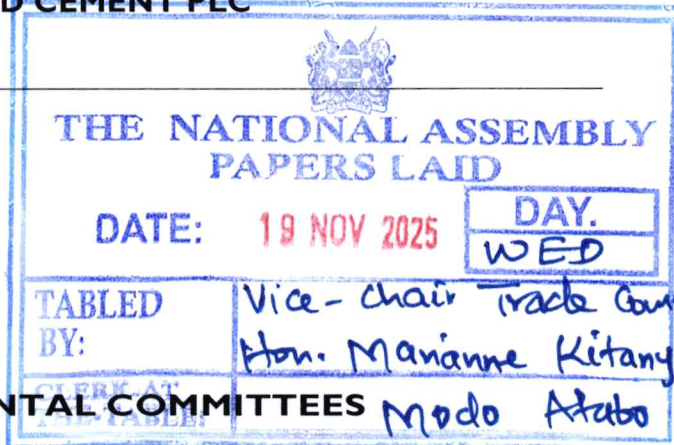 D CEMENT PLC
THE NATIONAL ASSEMBLY
PAPERS LAID
DATE: 19 NOV 2025
DAY.
WED
TABLED BY:
Vice-chair Trade Com
Hon. Marianne Kitany
CLERK AT THE-TABLE:
NTAL COMMITTEES
Modo